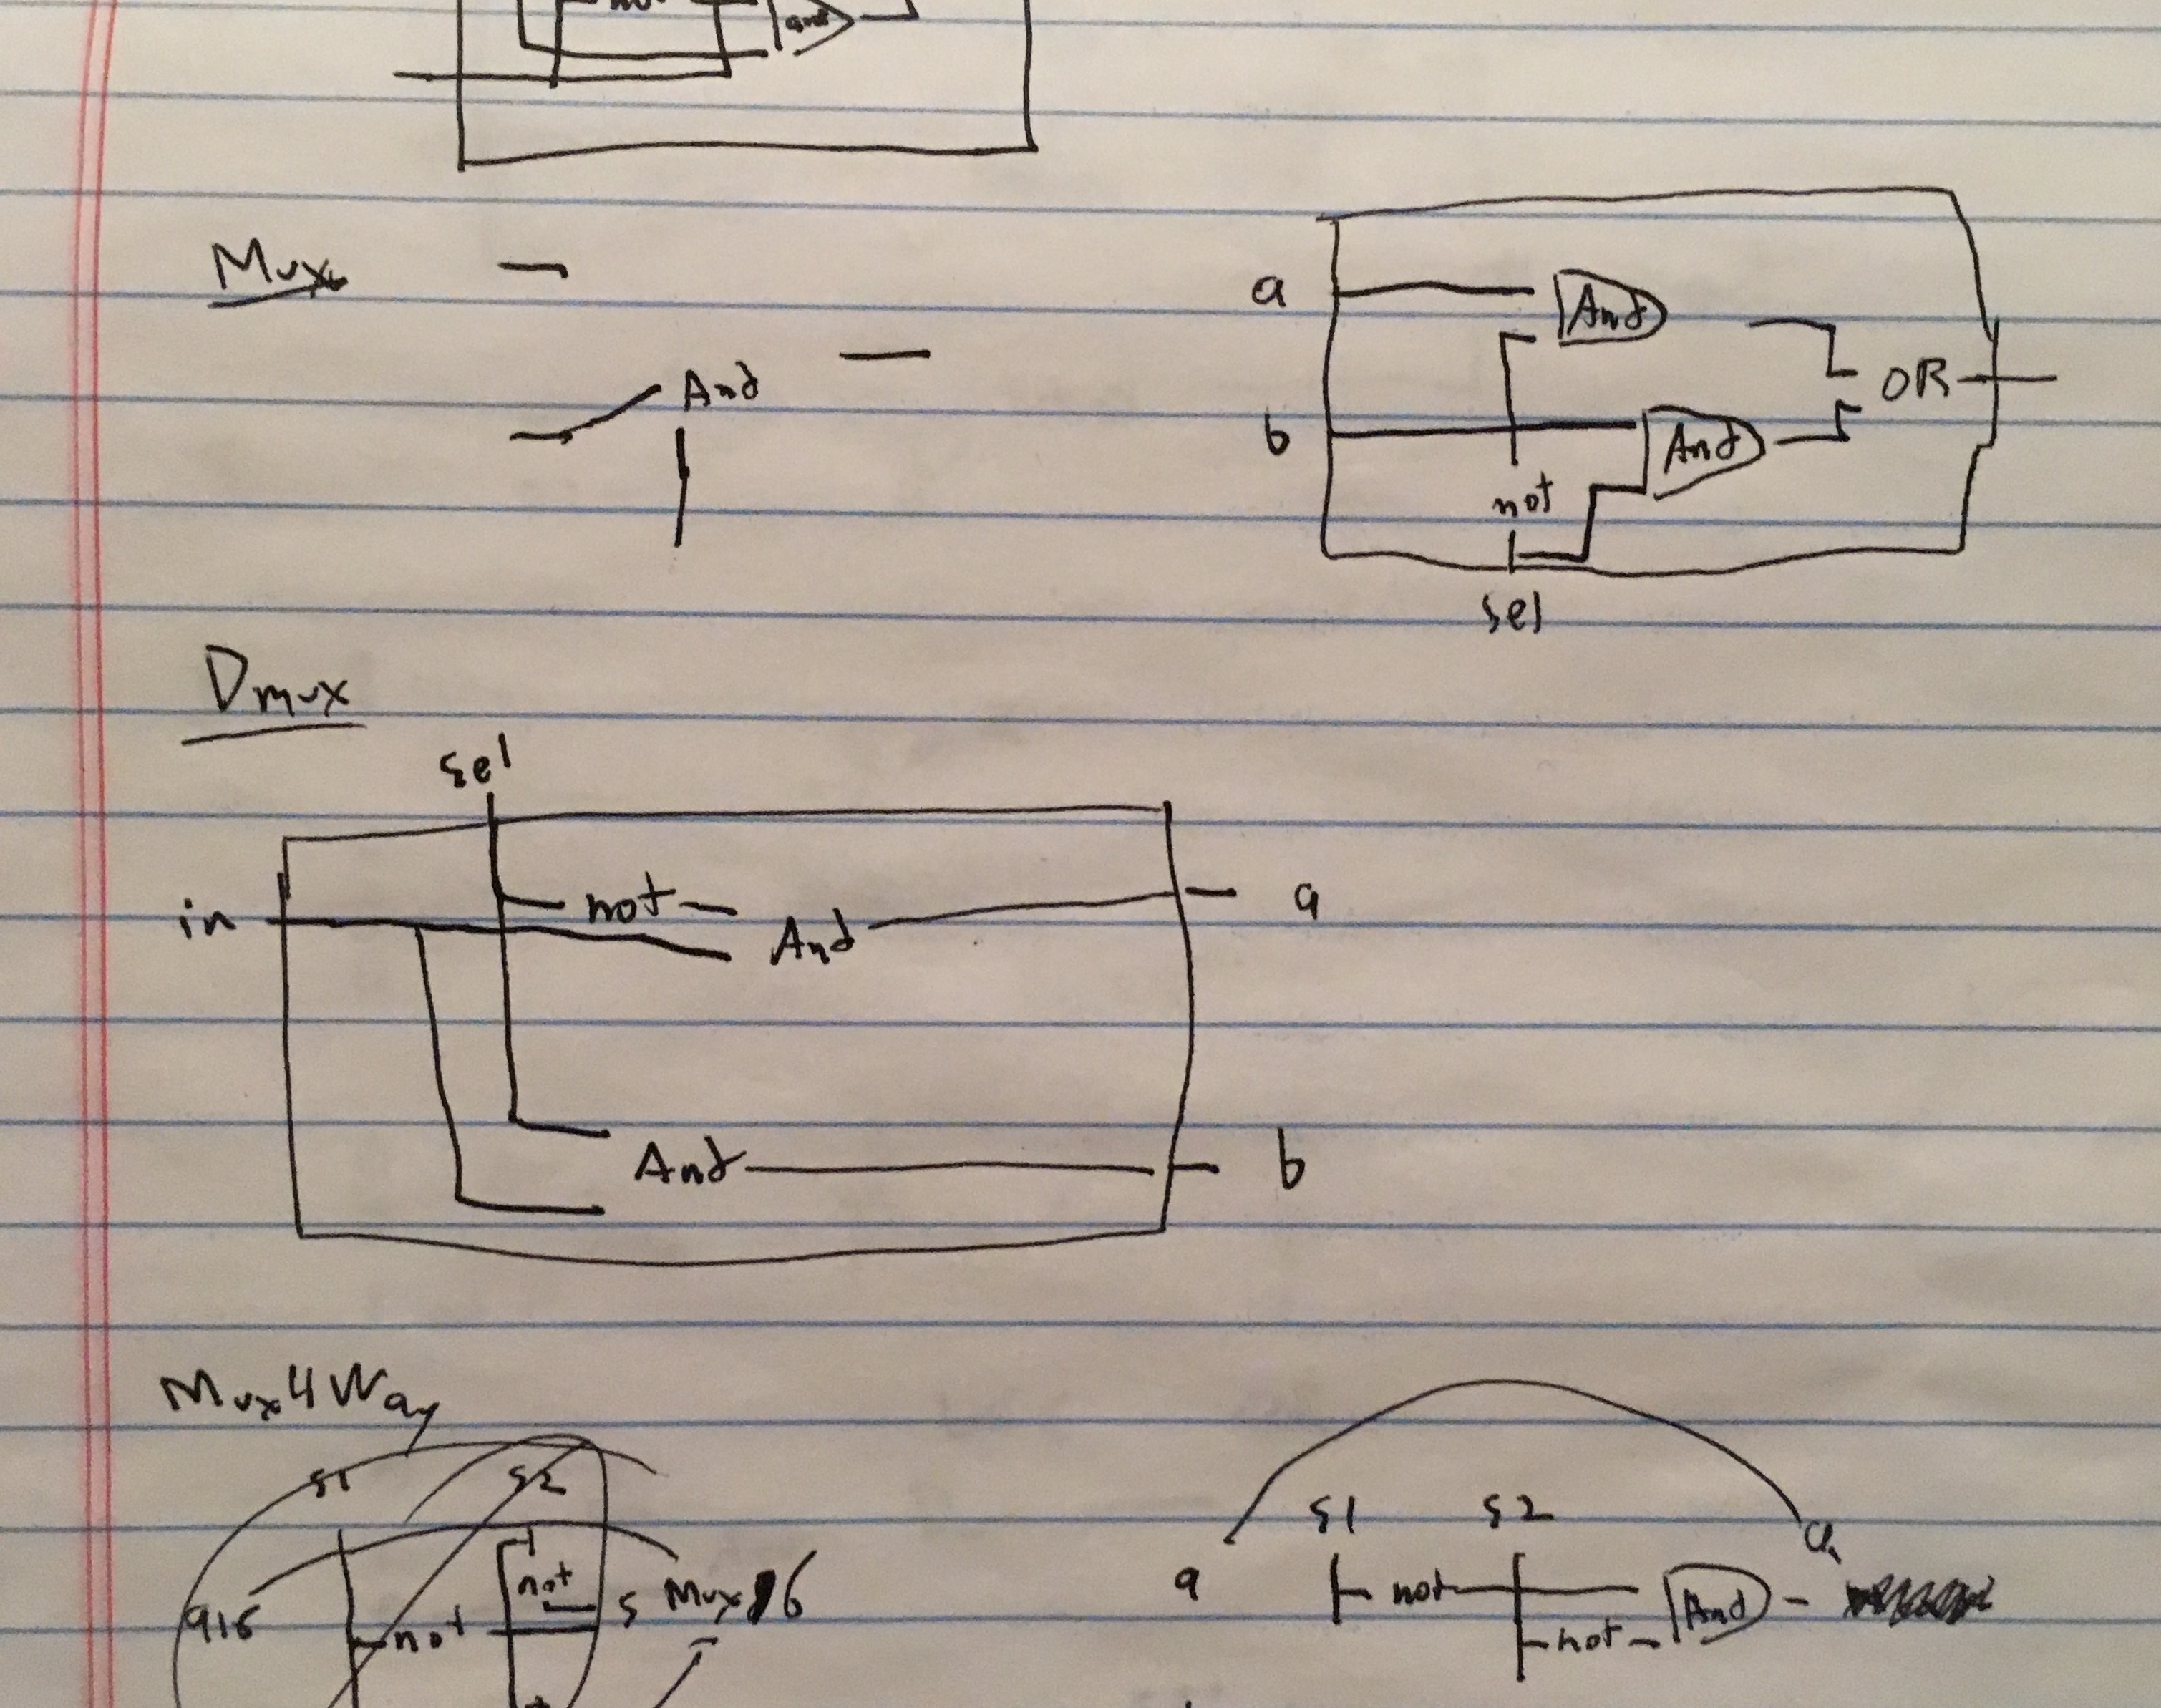 not
and
Mux
a
And
And
OR
b
And
not
sel
Dmux
sel
in
not
And
a
And
b
Mux4Way
s1 s2
s1 s2
a
not
a16
s Mux16
not
a
not
And
not